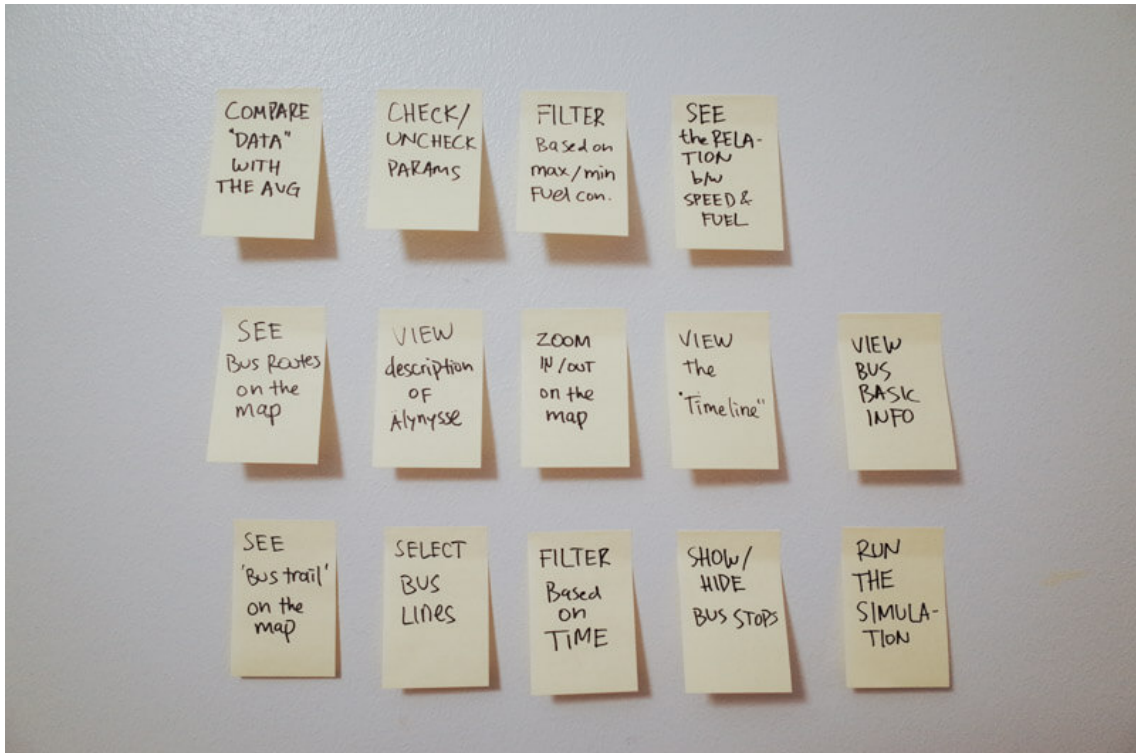 COMPARE
"DATA"
WITH
THE AVG
CHECK/
UNCHECK
PARAMS
FILTER
Based on
max/min
Fuel con.
SEE
the RELA-
TION
b/w
SPEED &
FUEL
SEE
Bus Routes
on the
map
VIEW
description
OF
Älynysse
ZOOM
IN/OUT
on the
map
VIEW
the
"Timeline"
VIEW
BUS
BASIC
INFO
SEE
'Bus trail'
on the
map
SELECT
BUS
LINES
FILTER
Based
on
TIME
SHOW/
HIDE
BUS STOPS
RUN
THE
SIMULA-
TION